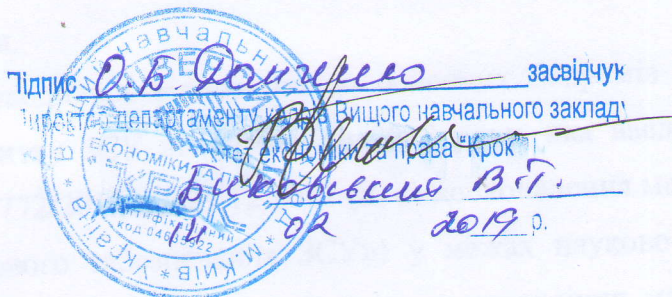 Підпис О.Б. Данченко засвідчую
Директор департаменту кадрів Вищого навчального закладу
економіки та права "Крок"
Биковський В.Т.
14 02 2019 р.
навчальн
УНІВЕРС
ЕКОНОМІКИ ТА П
КРОК
код 04635922
* м.Київ * Україна *